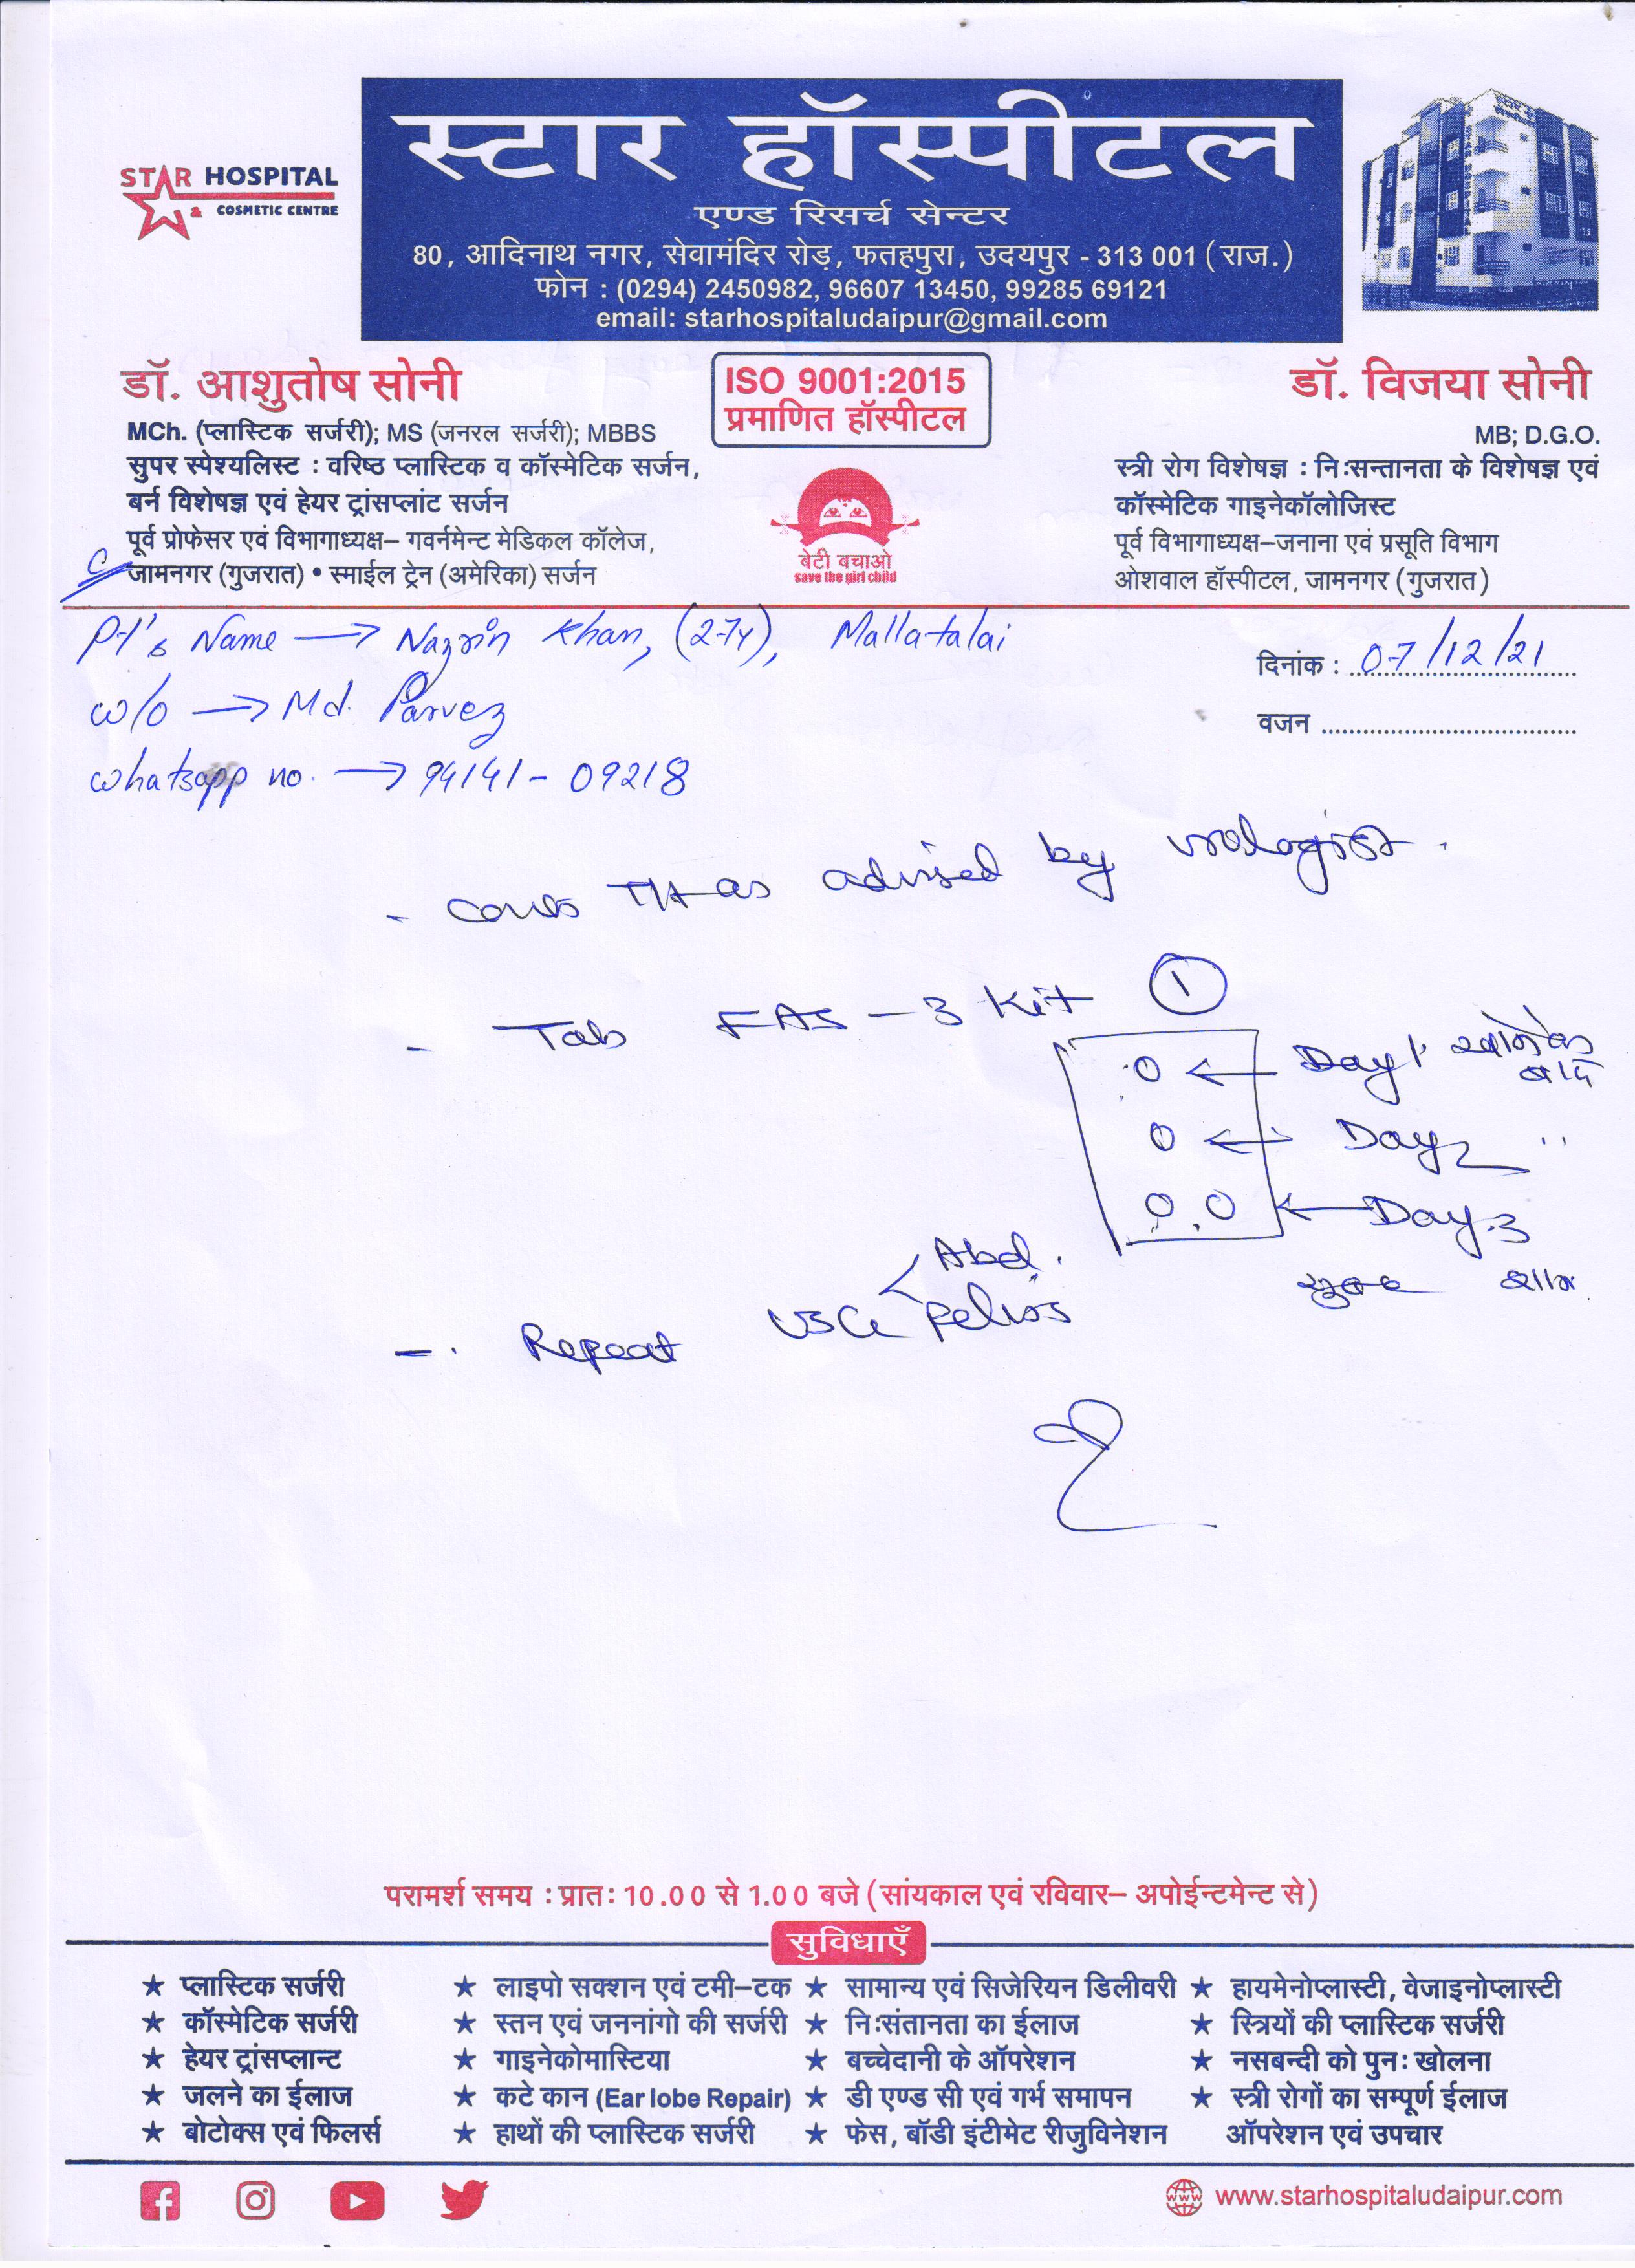 स्टार हॉस्पीटल
STAR HOSPITAL
& COSMETIC CENTRE
एण्ड रिसर्च सेन्टर
80, आदिनाथ नगर, सेवामंदिर रोड़, फतहपुरा, उदयपुर - 313 001 (राज.)
फोन : (0294) 2450982, 96607 13450, 99285 69121
email: starhospitaludaipur@gmail.com
डॉ. आशुतोष सोनी
MCh. (प्लास्टिक सर्जरी); MS (जनरल सर्जरी); MBBS
सुपर स्पेश्यलिस्ट : वरिष्ठ प्लास्टिक व कॉस्मेटिक सर्जन,
बर्न विशेषज्ञ एवं हेयर ट्रांसप्लांट सर्जन
पूर्व प्रोफेसर एवं विभागाध्यक्ष– गवर्नमेन्ट मेडिकल कॉलेज,
जामनगर (गुजरात) • स्माईल ट्रेन (अमेरिका) सर्जन
ISO 9001:2015
प्रमाणित हॉस्पीटल
बेटी बचाओ
save the girl child
डॉ. विजया सोनी
MB; D.G.O.
स्त्री रोग विशेषज्ञ : निःसन्तानता के विशेषज्ञ एवं
कॉस्मेटिक गाइनेकॉलोजिस्ट
पूर्व विभागाध्यक्ष–जनाना एवं प्रसूति विभाग
ओशवाल हॉस्पीटल, जामनगर (गुजरात)
Pt's Name → Nazrin Khan, (27y), Mallatalai
दिनांक : 07/12/21
w/o → Md. Parvez
वजन
Whatsapp no. → 94141-09218
- as advised by urologist.
- Tab FAS-3 Kit 1
0 ← Day 1 खाने के बाद
0 ← Day 2 "
0 0 ← Day 3
सुबह शाम
- Repeat USG Abd. Pelvis
परामर्श समय : प्रातः 10.00 से 1.00 बजे (सांयकाल एवं रविवार– अपोईन्टमेन्ट से)
सुविधाएँ
★ प्लास्टिक सर्जरी ★ लाइपो सक्शन एवं टमी–टक ★ सामान्य एवं सिजेरियन डिलीवरी ★ हायमेनोप्लास्टी, वेजाइनोप्लास्टी
★ कॉस्मेटिक सर्जरी ★ स्तन एवं जननांगो की सर्जरी ★ निःसंतानता का ईलाज ★ स्त्रियों की प्लास्टिक सर्जरी
★ हेयर ट्रांसप्लान्ट ★ गाइनेकोमास्टिया ★ बच्चेदानी के ऑपरेशन ★ नसबन्दी को पुनः खोलना
★ जलने का ईलाज ★ कटे कान (Ear lobe Repair) ★ डी एण्ड सी एवं गर्भ समापन ★ स्त्री रोगों का सम्पूर्ण ईलाज
★ बोटोक्स एवं फिलर्स ★ हाथों की प्लास्टिक सर्जरी ★ फेस, बॉडी इंटीमेट रीजुविनेशन ऑपरेशन एवं उपचार
www.starhospitaludaipur.com